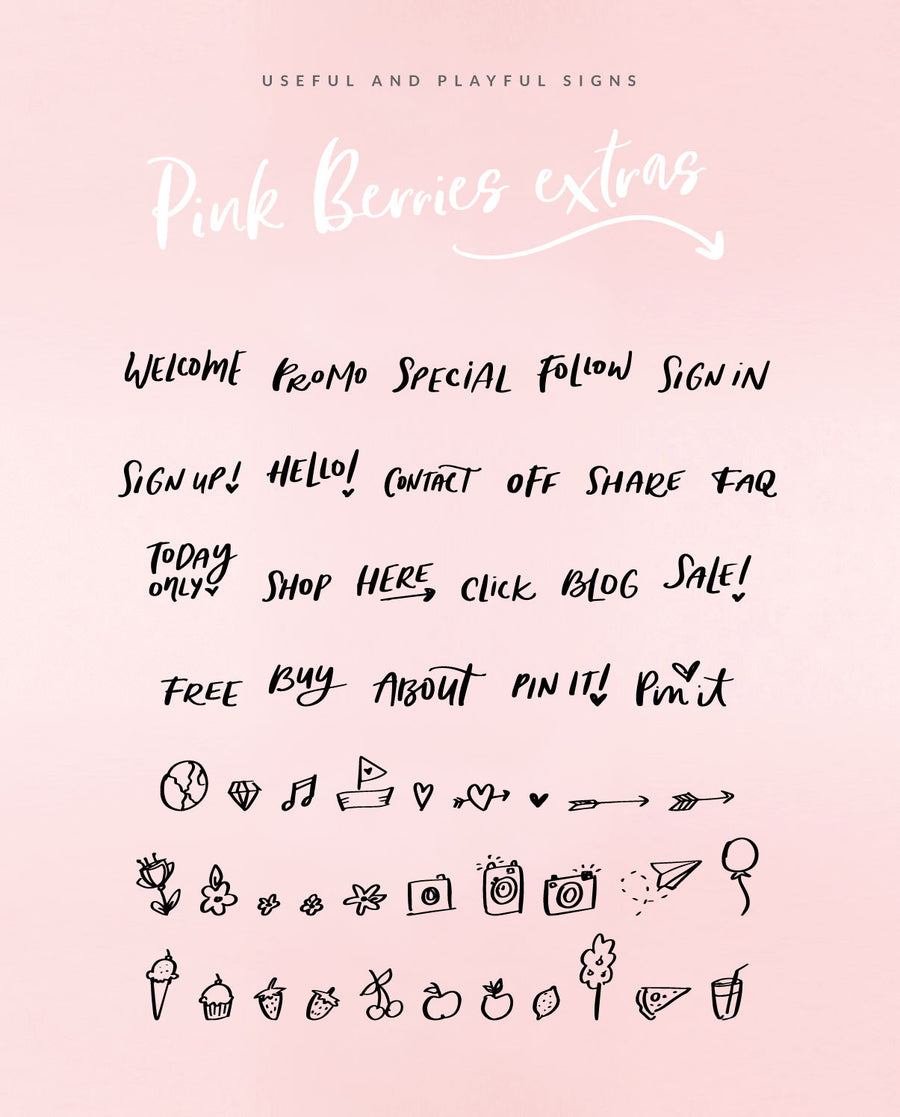 USEFUL AND PLAYFUL SIGNS
Pink Berries extras
WELCOME PROMO SPECiAL FOLLOW SiGN iN
SiGN UP! HELLO! CONTACT OFF SHARE FAQ
TODAY ONLY SHOP HERE CLICK BLOG SALE!
FREE BUY ABOUT PIN IT! Pin it